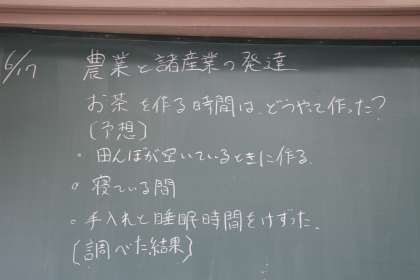 6/17
農業と諸産業の発達
お茶を作る時間は、どうやって作った?
(予想)
・田んぼが空いているときに作る。
・寝ている間
・手入れと睡眠時間をけずった。
(調べた結果)